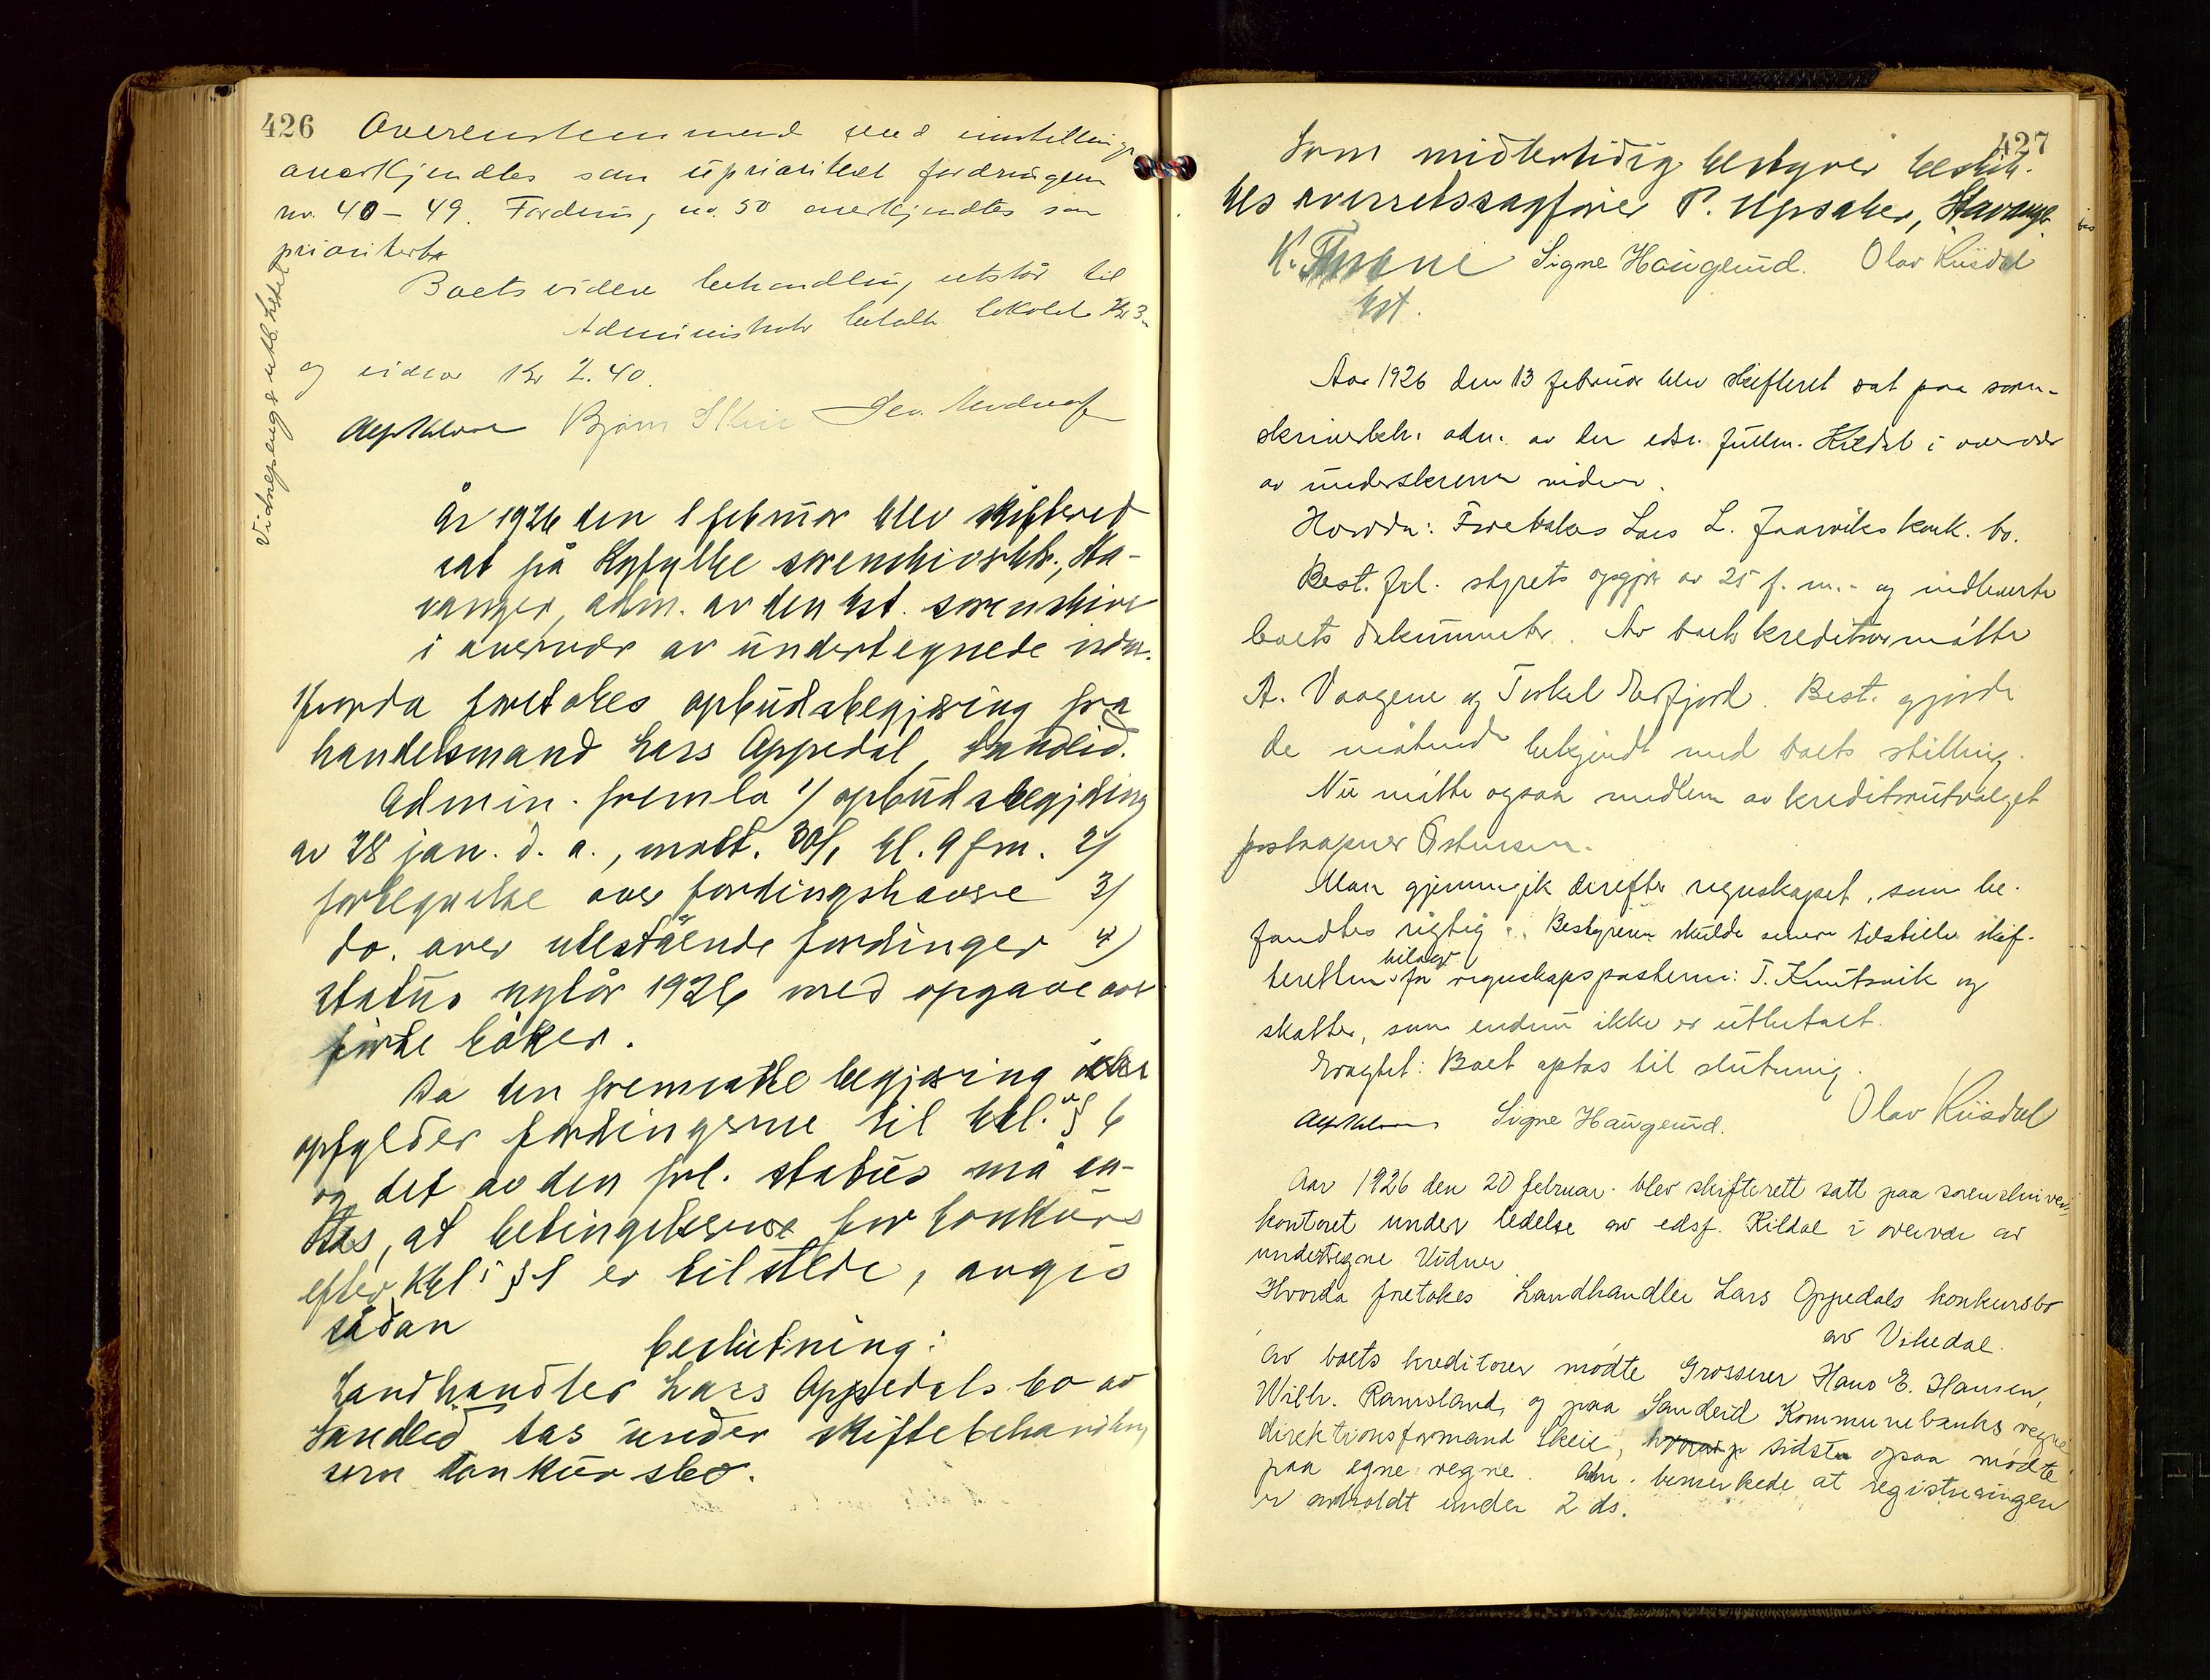 426
Overenstemmende med innstillingen
anerkjendtes som uprioritert fordringen
nr. 40 – 49. Fordring no. 50 anerkjendtes som
prioritert.
Boets videre behandling utstår til
Administrator betalte lokalet Kr 3.-
og vidner Kr 2.40.
Vidnepenge utb. Lodel
Bjarne Skeie
År 1926 den 1 februar blev skifteret
sat på Ryfylke sorenskriverktr., Sta-
vanger, adm. av den kst. sorenskriver
i overvær av undertegnede vidn.
Hvorda foretokes opbudsbegjæring fra
handelsmand Lars Oppedal, Sandeid.
Admin. fremla 1) opbudsbegjæring
av 28 jan. d. a., mott. 30/1 kl. 9 fm. 2)
fortegnelse over fordringshavere 3)
do. over utestående fordringer 4)
status nytår 1926 med opgave over
førte bøker.
Da den fremsatte begjæring ikke
opfylder fordringerne til kkl. § 6
og det av den frl. status må an-
tas, at betingelserne for konkurs
efter kkl. § 1 er tilstede, avgis
sådan
beslutning:
Landhandler Lars Oppedals bo av
Sandeid tas under skiftebehandling
som konkursbo.
427
Som midlertidig bestyrer beskik-
kes overretssagfører P. Upsaker, Stavanger.
K. Thrane Signe Haugerud. Olav Kiisdal
kst.
Aar 1926 den 13 februar blev skifteret sat paa soren-
skriverktr. adm. av den edsv. fuldm. Kildal i overvær
av underskrevne vidner.
Hvorda: Foretokes Lars L. Jaarviks konk. bo.
Best. frl. styrets opgjør av 25 f. m. - og indleverte
boets dokumenter. Av boets kreditorer møtte
A. Vaagene og Torkel Erfjord. Best. gjorde
de møtende bekjendt med boets stilling.
Nu møtte ogsaa medlem av kreditorutvalget
postaapner Østensen.
Man gjennemgik derefter regnskapet, som be-
fandtes rigtig. Bestyreren skulde senere tilstille skif-
teretten bilag for regnskapsposterne: T. Knutsvik og
skatter, som endnu ikke er utbetalt.
Eragtet: Boet optas til slutning.
Signe Haugerud. Olav Kiisdal
Aar 1926 den 20 februar blev skifterett satt paa sorenskriver-
kontoret under ledelse av edsf. Kildal i overvær av
undertegne Vidner
Hvorda foretokes Landhandler Lars Oppedals konkursbo
av Vikedal.
Av boets kreditorer mødte Grosserer Hans E. Hansen,
Wilh. Ramsland, og paa Sandeid Kommunebanks vegne
direktionsformand Skeie, sidste ogsaa mødte
paa egne vegne. Adm. bemerkede at registreringen
er avholdt under 2 ds.